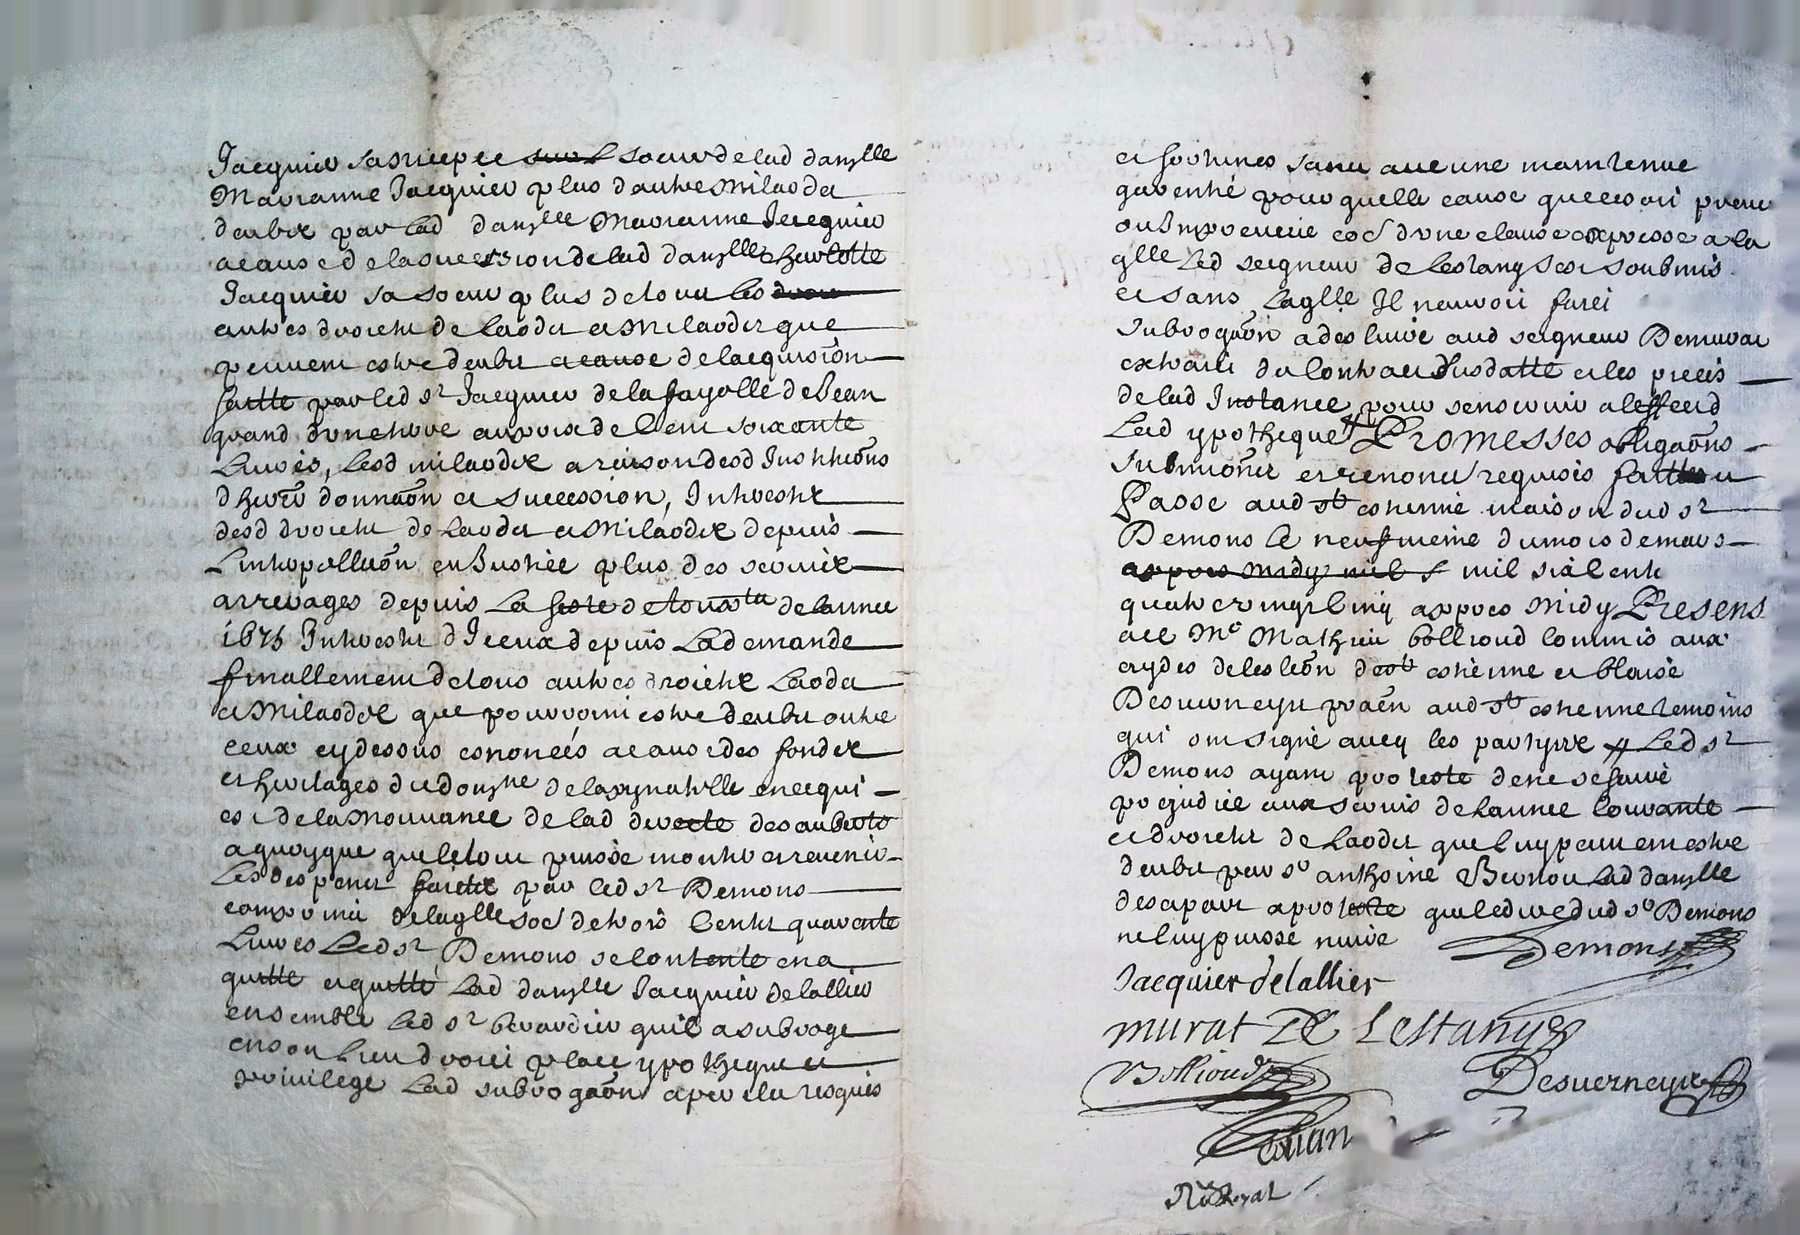 Jacquier sa niepce soeur de lad damlle
Marianne Jacquier plus dautre milaods
deubz par lad damlle Marianne Jacquier
a cause de la succession de lad damlle charlotte
Jacquier sa soeur plus de tous les
autres droicts de laods et milaods que
peuvent estre deubz a cause de lacquision
faitte par led sr Jacquier de la fayolle de Jean
quand dune au prix de cent soixante
Livres, lesd milaods a raison desd Institueons
dheree donnaon et succession, Intherestz
desd droicts de Laods et Milaods depuis
Linterpellaon en Justice plus des servix
arreyages depuis la feste de toussts de lannee
1675 Intherestz d Iceux depuis La demande
finallement de tous autres droicts Laods
et Milaods que pourroint estre deubz outre
ceux cy dessus enoncés a cause des fondz
et heritages du domyne de la pynatelle en ce qui
est de la mouvance de lad directe des auberts
a quoy que que le tout puisse monter et revenir
Les despens faictz par led sr Demons
comprins de laqlle some de trois Centz quarente
Livres Led sr Demons se contente en a
quitté et quitte Lad damlle Jacquier de lallier
ensemble led sr berardier quil a subroge
en son lieu droict place ypotheque et
privilege Lad subrogaon a perilz risques
et fortunes sans aucune maintenue
garentie pour quelle cause que ce soit preveue
ou Improveue est dune clause expresse a la
qlle Led seigneur de Lestang sest soubmis
et sans laqlle Il nauroit faict
subrogaon a des livré aud seigneur Demurat
extraict du contract susdatté et les pieces
de lad Instance pour sen servir a leffect d
Lad ypotheque Promesses obligaons
submions et renoncz requises faict et
Passé aud st estienne maison dud sr
Demons le neufvieme du mois de mars
apres midy mil mil six cents
quatre vingt cinq appres Midy Presens
Me Mathieu bollioud commis aux
aydes de leslon de st estienne et blaise
Desverneys praen aud st estienne temoins
qui ont signé avecq les partyes Led sr
Demons ayant proteste de ne se faire
prejudice aux servis de Lannee courante
et droicts de Laods que luy peuvent estre
deubz par sr anthoine Lad damlle
de sa part a proteste que le dire dud sr Demons
ne luy puisse nuire Demons
Jacquier de lallier
murat De Lestang
Bollioud Desverneys
Royal